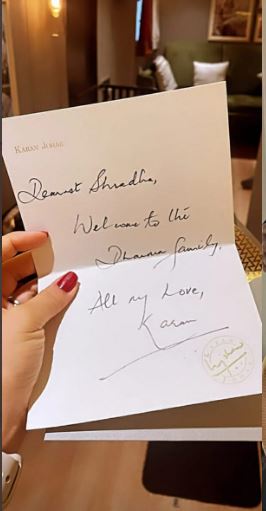 KARAN JOHAR
Dearest Shradha,
Welcome to the
Dharma family.
All my Love,
Karan